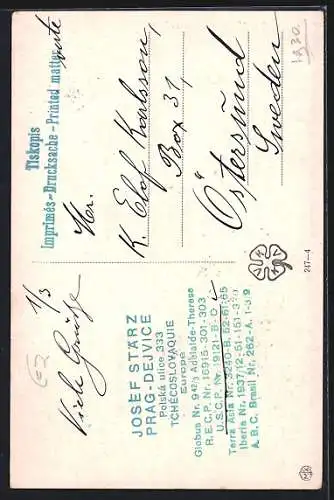 1930
Tiskopis
Imprimés-Drucksache-Printed matter
Hr.
K. Elof Karlsson,
Box 31,
Östersund
Sweden
247-4
1/3
Viele Grüße
JOSEF STÄRZ
PRAG-DEJVICE
Polská ulice 333
TCHÉCOSLOVAQUIE
Europe
Globus Nr. 947a Adélaide-Therese
R.E.C.P. Nr. 16915-301-303
U.S.C.P. Nr. 19121-B-O
Terra Asta Nr. 2240-B. 52-61-65
Iberia Nr. 1637/12-51-151-370
A.B.C. Brasil Nr. 262-A. 1-3 9